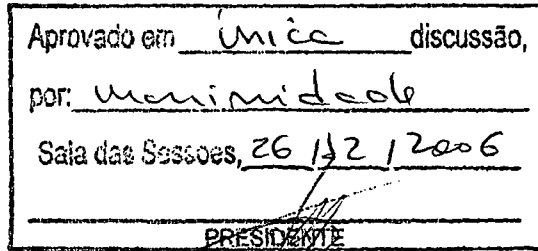 Aprovado em única discussão,
por: unanimidade
Sala das Sessoes, 26 / 12 / 2006
PRESIDENTE